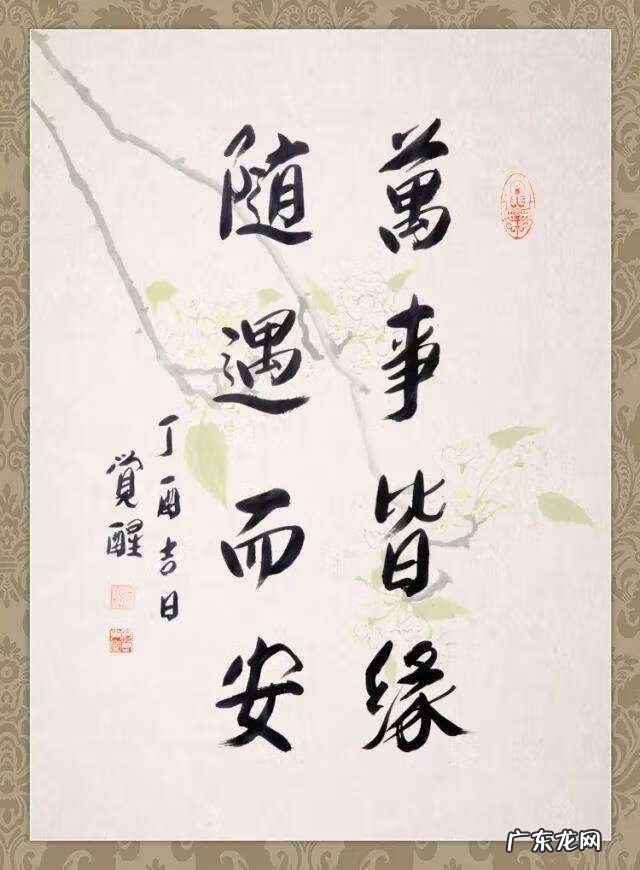 萬事皆緣
随遇而安
丁酉吉日
覚醒
广东龙网